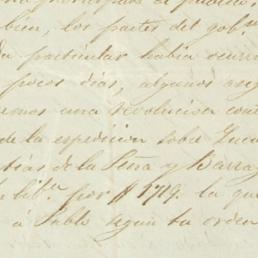 bien, los partes del gob.no
particular habia ocurri
pocos dias, algunos
rmos una revolucion con
de la espedicion sobre Yuca
tias de la Peña y Barra
lib.za por $1719. la qu
á Pablo segun tu orden